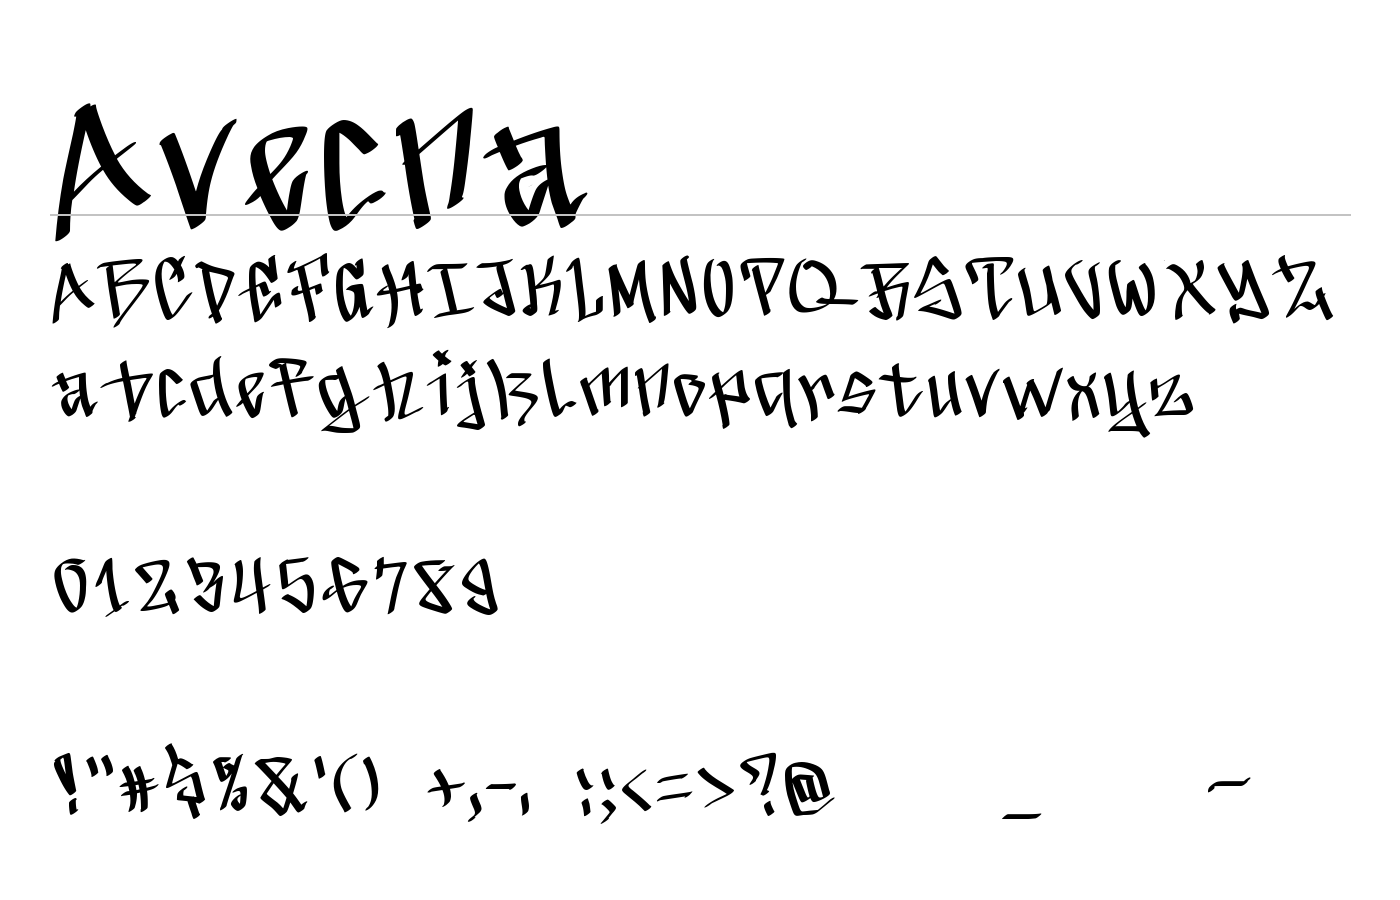 Avecna
ABCDEFGHIJKLMNOPQRSTUVWXYZ
abcdefghijklmnopqrstuvwxyz
0123456789
!"#$%&'() +,-. :;<=>?@ _ ~